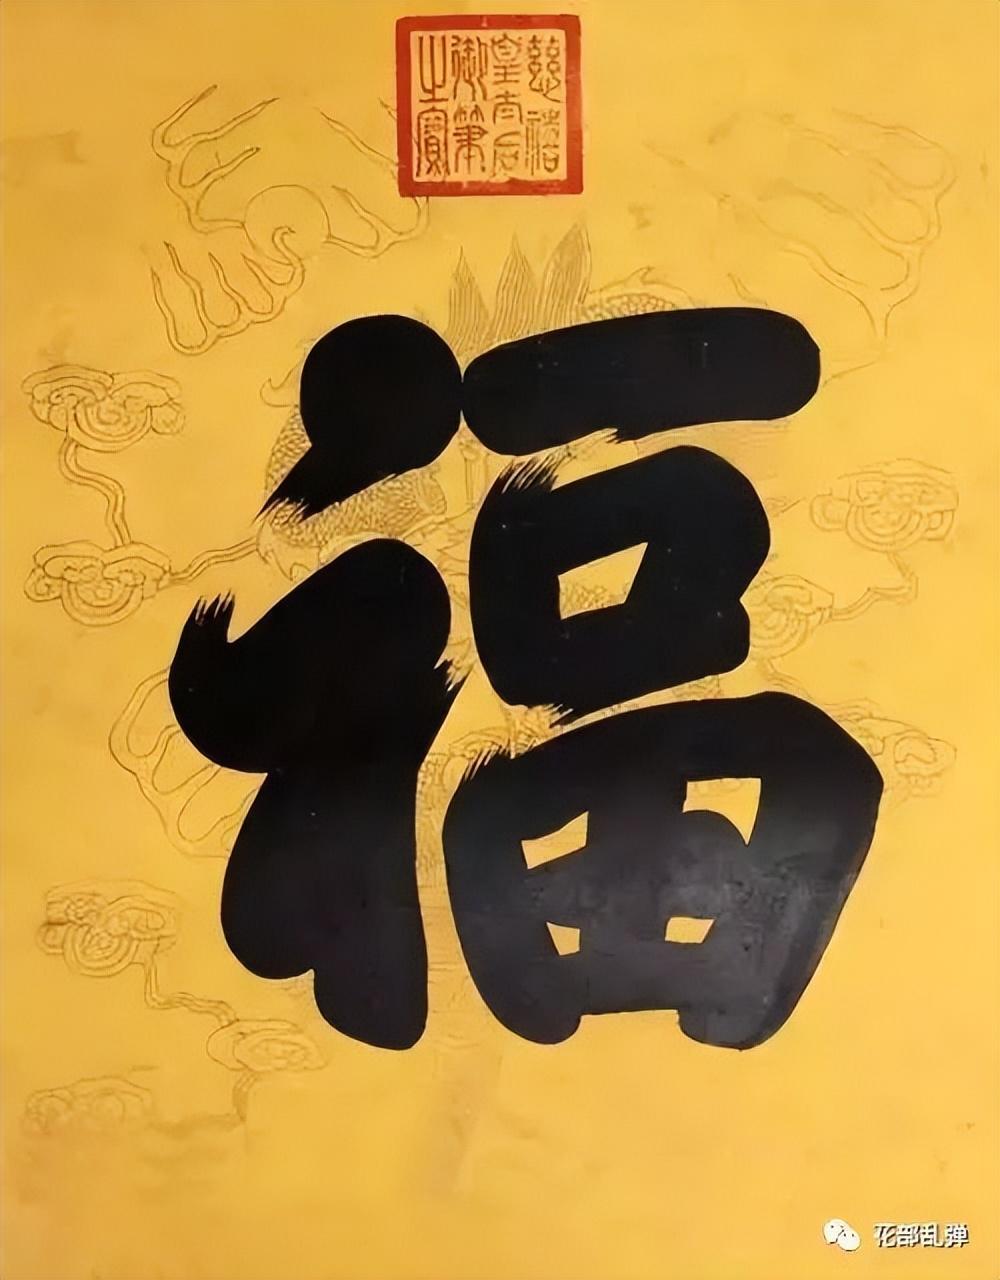 慈禧皇太后御筆之寶
福
花部乱弹